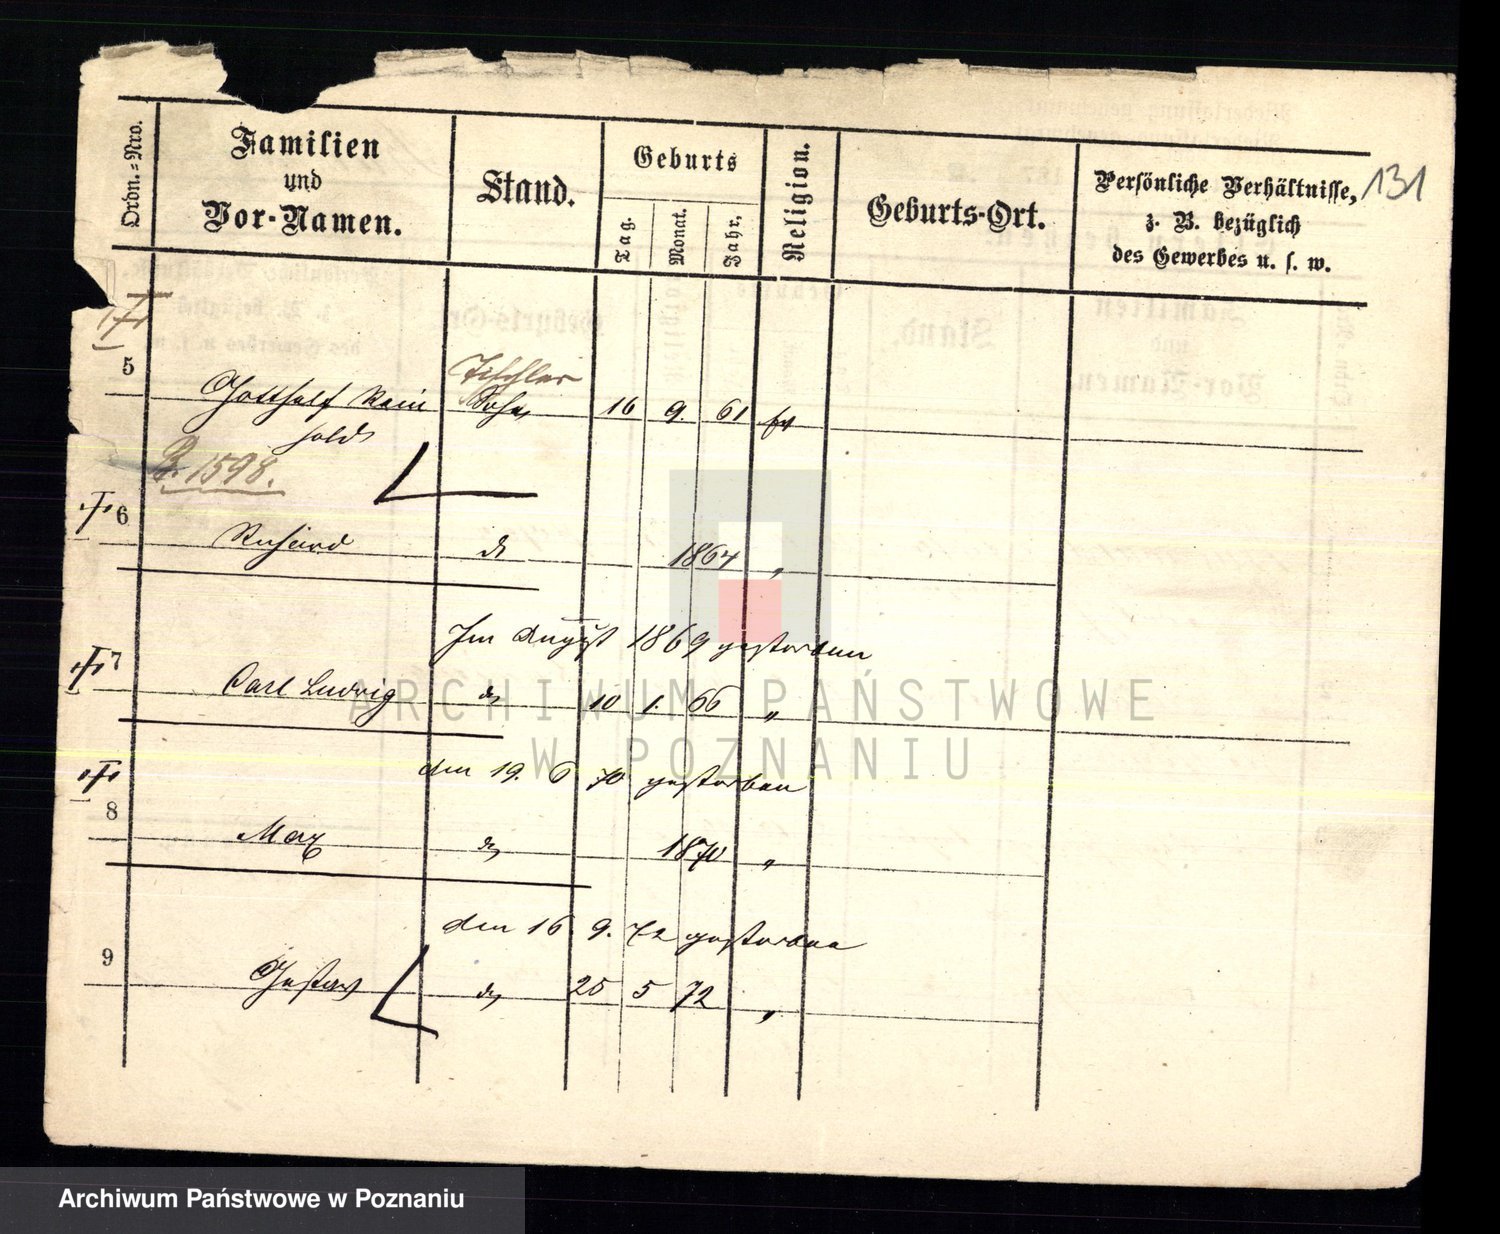 Ordn.=Nro.
Familien
und
Vor-Namen.
Stand.
Geburts
Tag.
Monat.
Jahr.
Religion.
Geburts-Ort.
Persönliche Verhältnisse,
z. B. bezüglich
des Gewerbes u. s. w.
131
5
Gotthelf Rein
hold
Tischler
Sohn
16 9. 61 ev
B. 1598.
6
Richard do 1864 "
Im August 1869 gestorben
7
Carl Ludwig do 10 1. 66 "
den 19. 6 70 gestorben
8
Max do 1870 "
den 16 9. 72 gestorben
9
Gustav do 25 5 72 "
ARCHIWUM PAŃSTWOWE
W POZNANIU
Archiwum Państwowe w Poznaniu